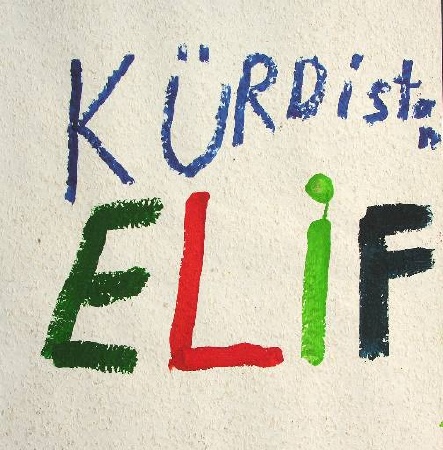 KÜRDistan
ELiF